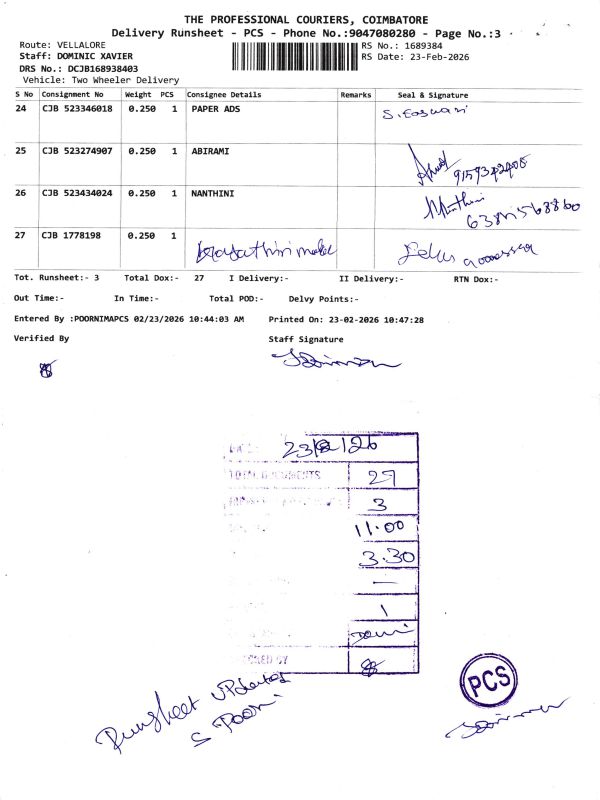 THE PROFESSIONAL COURIERS, COIMBATORE
Delivery Runsheet - PCS - Phone No.:9047080280 - Page No.:3
Route: VELLALORE
RS No.: 1689384
Staff: DOMINIC XAVIER
RS Date: 23-Feb-2026
DRS No.: DCJB168938403
Vehicle: Two Wheeler Delivery
S No Consignment No Weight PCS Consignee Details Remarks Seal & Signature
24 CJB 523346018 0.250 1 PAPER ADS S. Easwari
25 CJB 523274907 0.250 1 ABIRAMI
26 CJB 523434024 0.250 1 NANTHINI Nanthini
27 CJB 1778198 0.250 1
Tot. Runsheet:- 3 Total Dox:- 27 I Delivery:- II Delivery:- RTN Dox:-
Out Time:- In Time:- Total POD:- Delvy Points:-
Entered By :POORNIMAPCS 02/23/2026 10:44:03 AM Printed On: 23-02-2026 10:47:28
Verified By Staff Signature
23/2/26
TOTAL DOCUMENTS 27
3
11.00
3.30
—
1
PCS
Runsheet Updated
S. Poorni